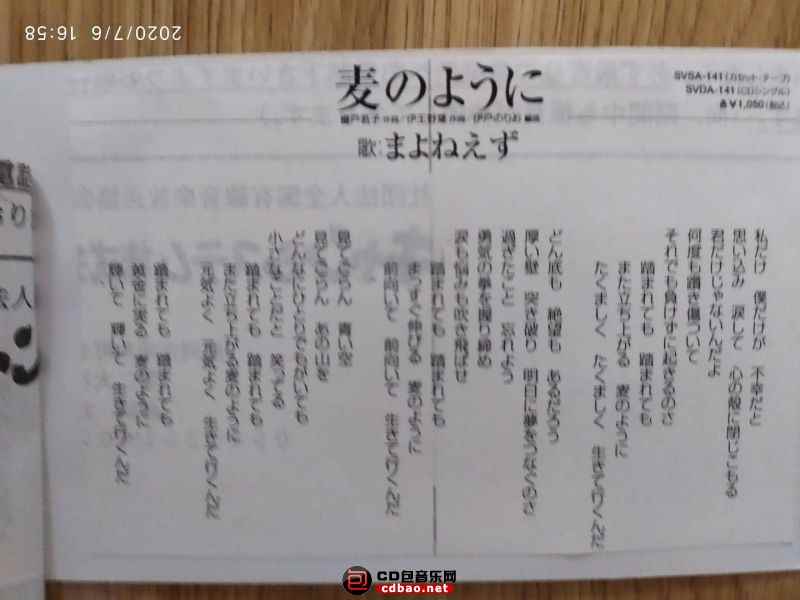 2020/7/6 16:58
麦のように
SVSA-141(カセット・テープ)
SVDA-141(CDシングル)
各¥1,050(税込)
歌:まよねえず
私だけ 僕だけが 不幸だと
思い込み 涙して 心の殻に閉じこもる
君だけじゃないんだよ
何度も躓き傷ついて
それでも負けずに起きるのさ
踏まれても 踏まれても
また立ち上がる 麦のように
たくましく たくましく 生きて行くんだ
どん底も 絶望も あるだろう
厚い壁 突き破り 明日に夢をつなぐのさ
過ぎたこと 忘れよう
勇気の拳を握り締め
涙も悩みも吹き飛ばせ
踏まれても 踏まれても
まっすぐ伸びる 麦のように
前向いて 前向いて 生きて行くんだ
見てごらん 青い空
見てごらん あの山を
どんなにひとりでもがいても
小さなことだと 笑ってる
踏まれても 踏まれても
また立ち上がる麦のように
元気よく 元気よく 生きて行くんだ
踏まれても 踏まれても
黄金に実る 麦のように
輝いて 輝いて 生きて行くんだ
CD包音乐网
cdbao.net